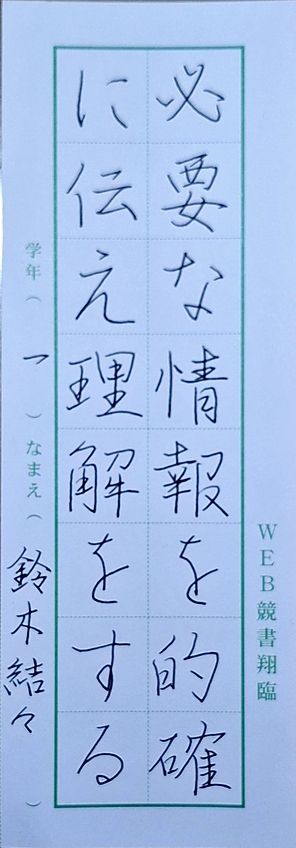 WEB競書翔臨
必要な情報を的確
に伝え理解をする
学年（一）なまえ（鈴木結々）